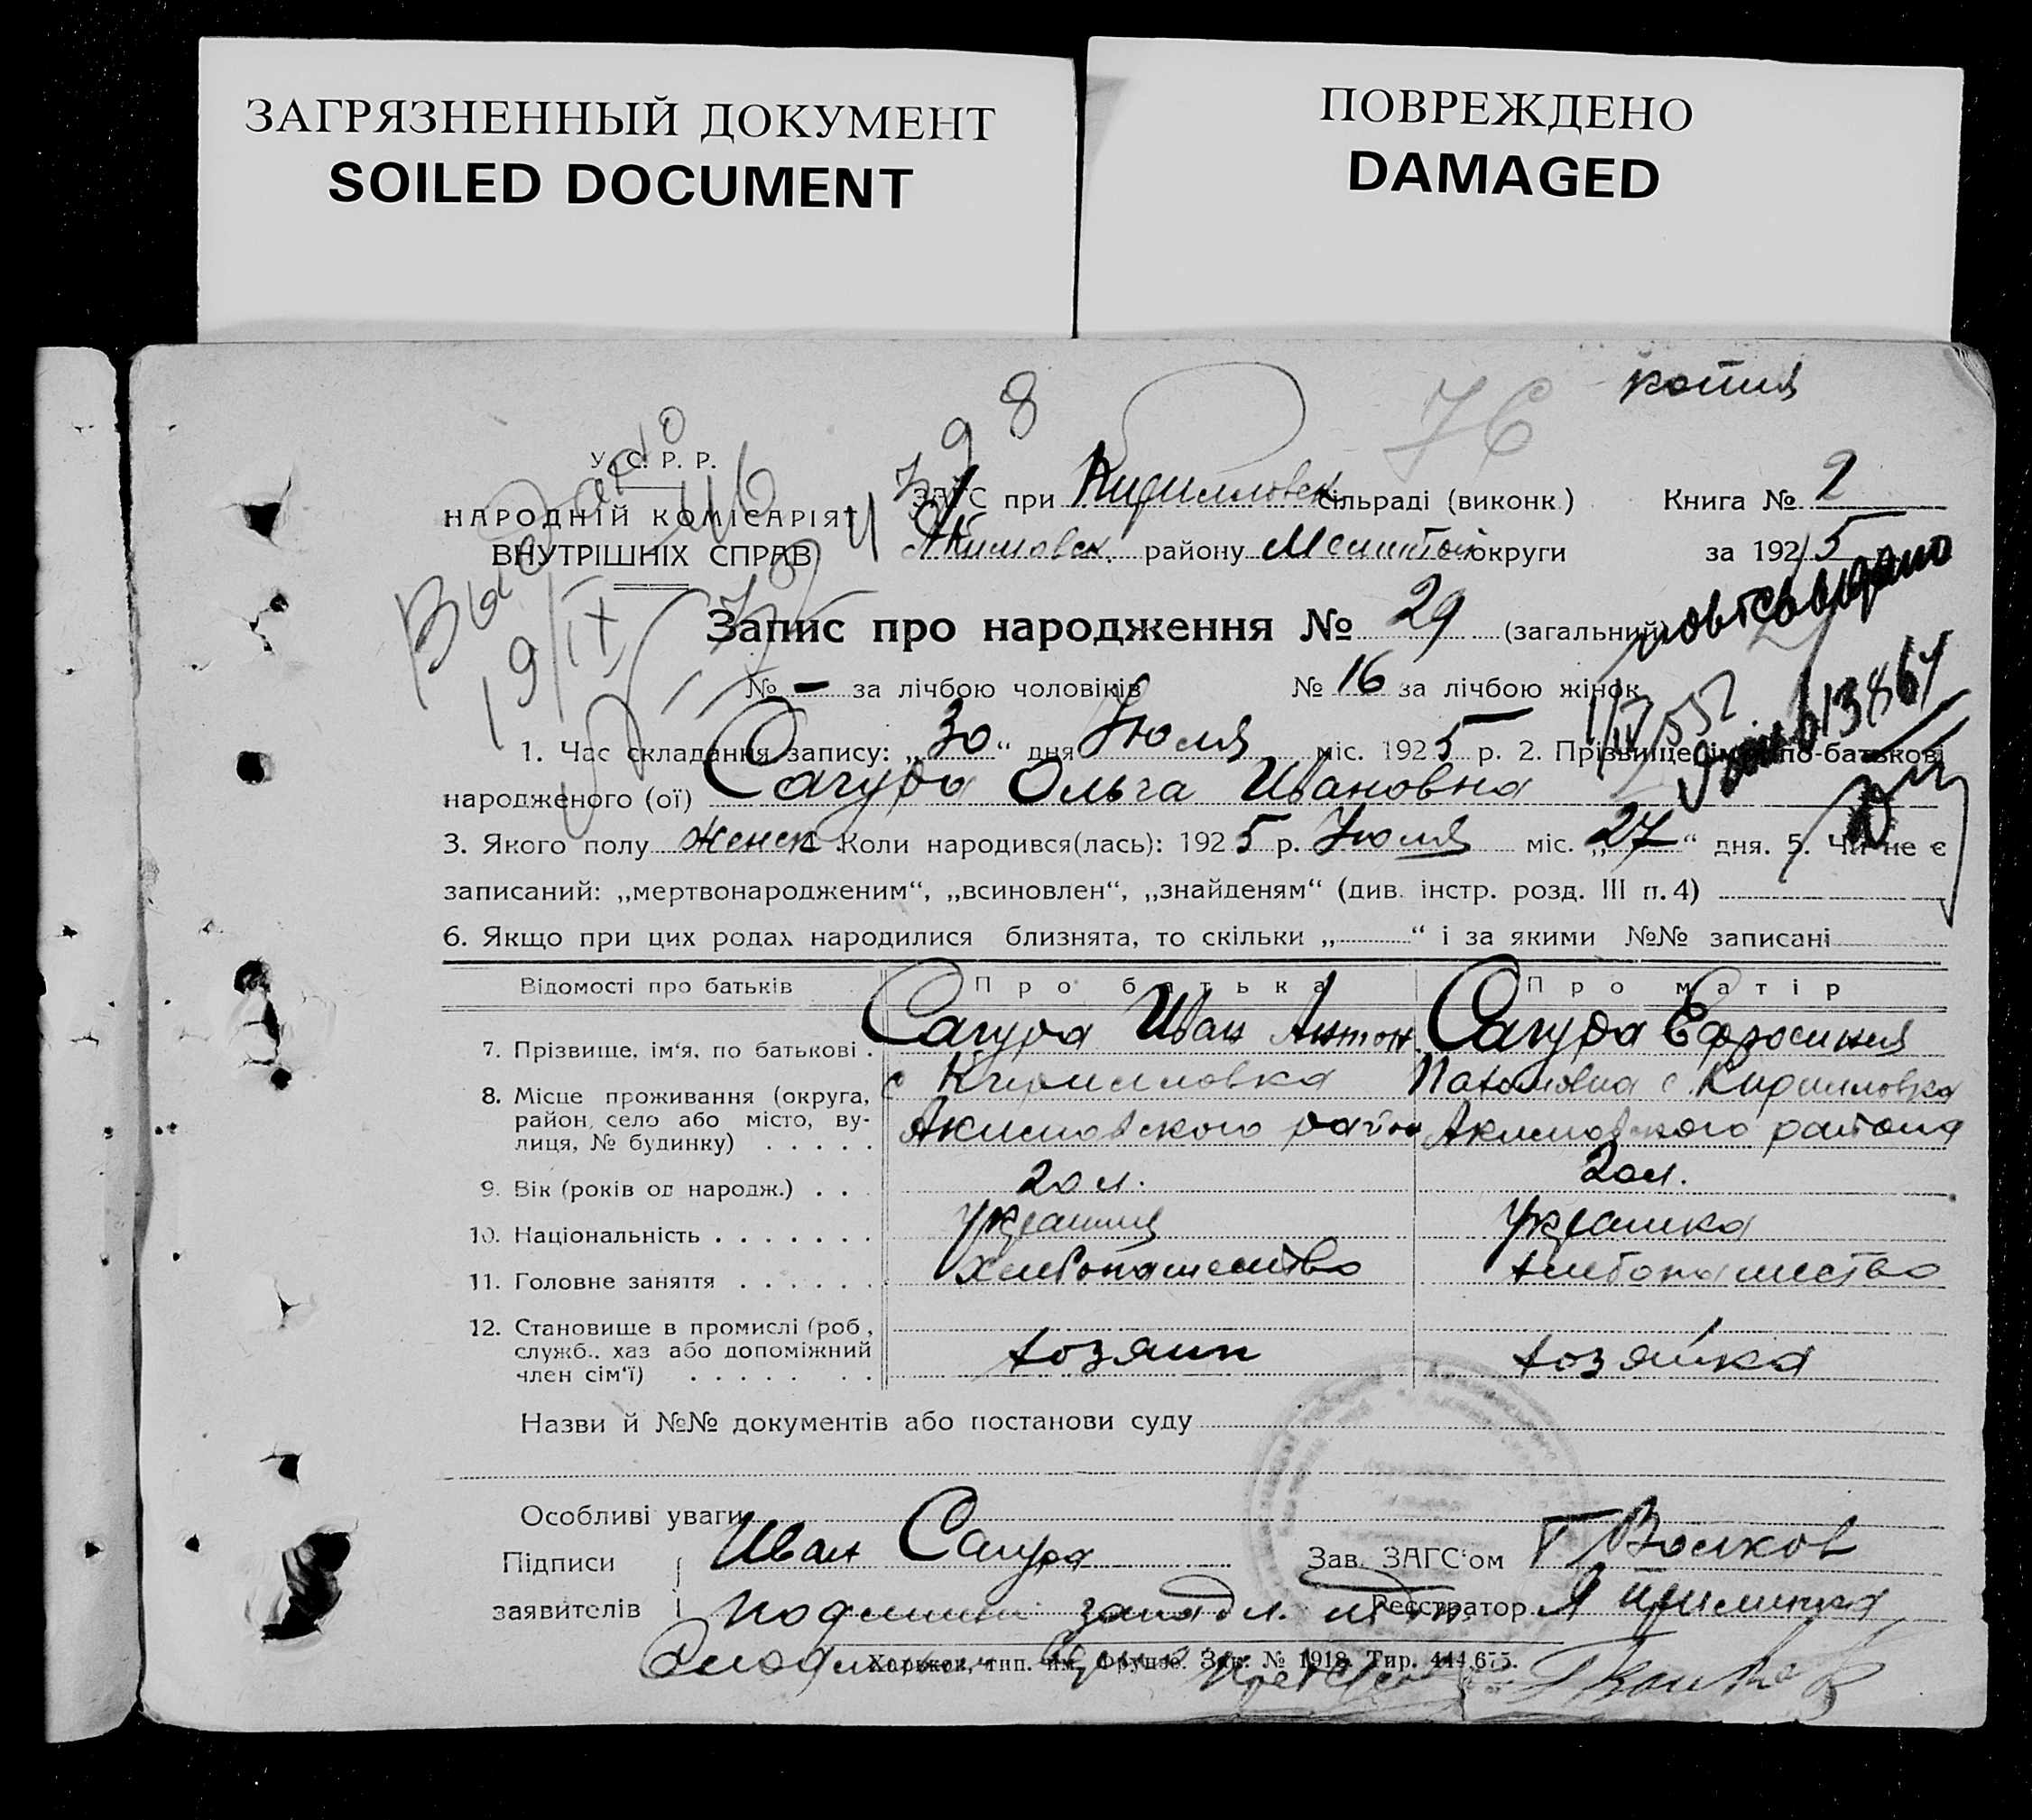 ЗАГРЯЗНЕННЫЙ ДОКУМЕНТ
SOILED DOCUMENT
ПОВРЕЖДЕНО
DAMAGED
копия
8
76
У. С. Р. Р.
НАРОДНІЙ КОМІСАРІЯТ
ВНУТРІШНІХ СПРАВ
Выдано
19/IX
ЗАГС при Кирилловск сільраді (виконк.) Книга № 2
Акимовск. району Мелитоп округи за 1925
Запис про народження № 29 (загальний)
повт свид дано
№ — за лічбою чоловіків № 16 за лічбою жінок
1. Час складання запису: „30“ дня Июля міс. 1925 р. 2. Прізвище, ім'я, по-батькові
народженого (ої) Сагура Ольга Ивановна
3. Якого полу женск 4. Коли народився(лась): 1925 р. Июля міс. „27“ дня. 5. Чи не є
записаний: „мертвонародженим“, „всиновлен“, „знайденям“ (див. інстр. розд. III п. 4)
6. Якщо при цих родах народилися близнята, то скільки „ “ і за якими №№ записані
Відомості про батьків Про батька Про матір
7. Прізвище, ім'я, по батькові . Сагура Иван Антон. Сагура Ефросиния
8. Місце проживання (округа, район, село або місто, вулиця, № будинку) . . . . .
с Кирилловка Потаповна с Кирилловка
Акимовского район Акимовского района
9. Вік (років од народж.) . . . 20 л. 20 л.
10. Національність . . . . . . . Украинец Украинка
11. Головне заняття . . . . . . Хлебопашество хлебопашество
12. Становище в промислі (роб., служб., хаз або допоміжний член сім'ї) . . . . . . . хозяин хозяйка
Назви й №№ документів або постанови суду
Особливі уваги
Підписи заявителів Иван Сагура
Зав. ЗАГС'ом Г Волков
Реєстратор
Харьков, тип. им. Фрунзе. Зак. № 1918. Тир. 444.675.